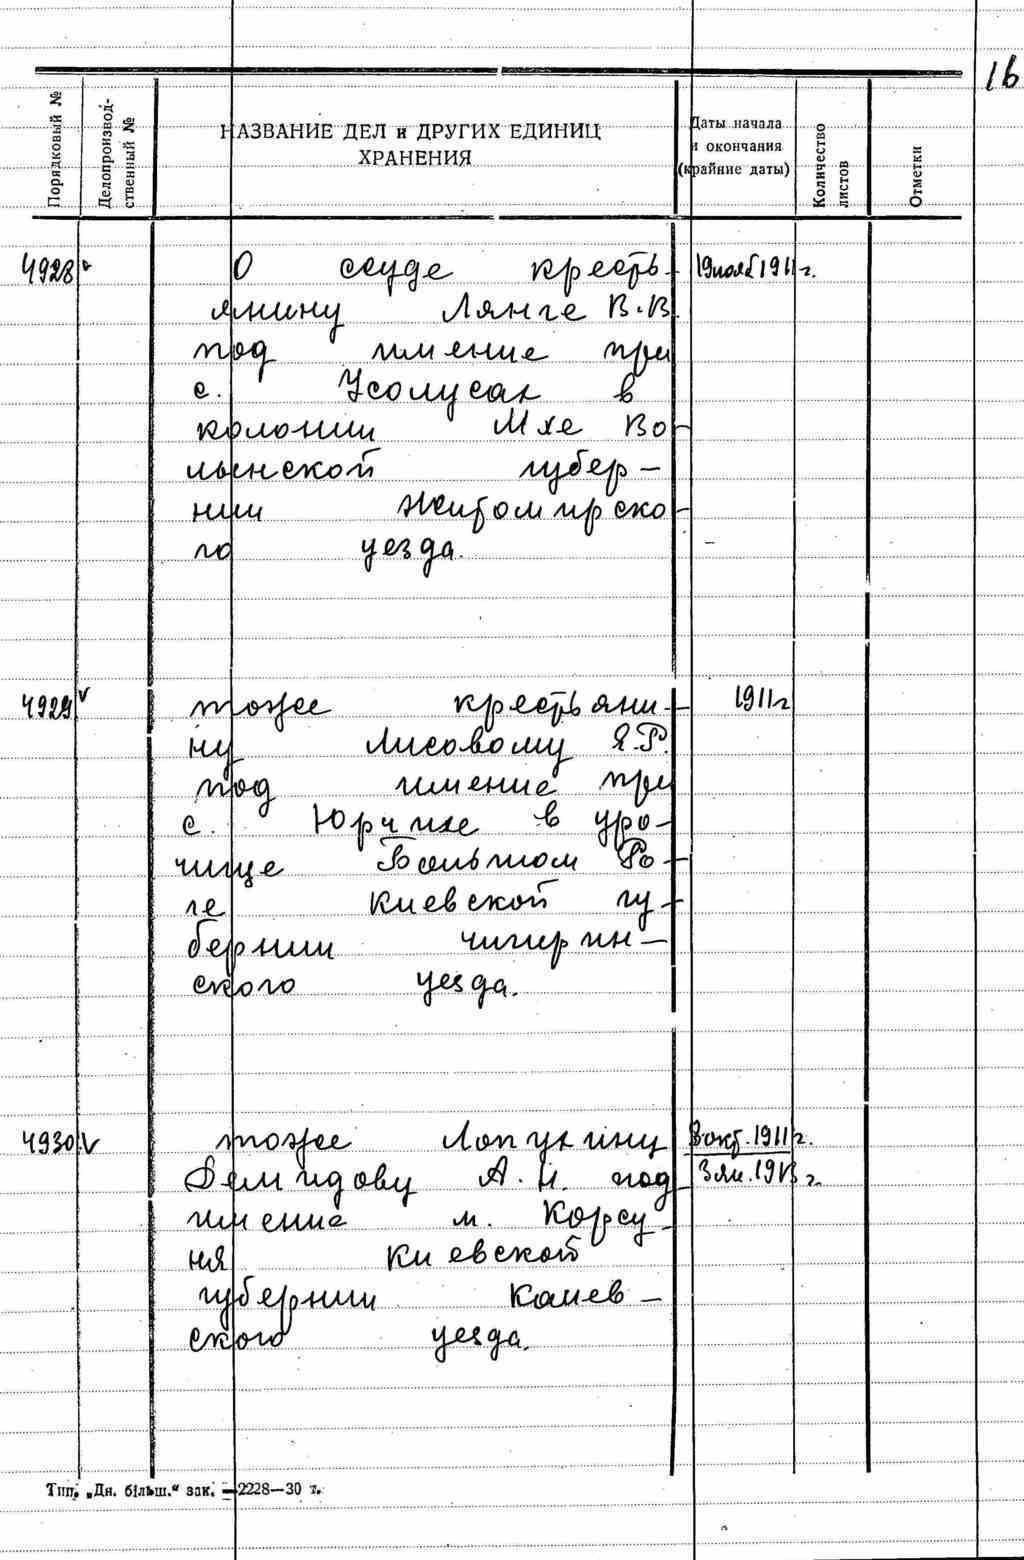 16
Порядковый №
Делопроизвод-
ственный №
НАЗВАНИЕ ДЕЛ и ДРУГИХ ЕДИНИЦ
ХРАНЕНИЯ
Даты начала
и окончания
(крайние даты)
Количество
листов
Отметки
4928 О ссуде кресть- 19 нояб 1911 г.
янину Лянге В.В.
под имение при
с. Усолусах в
колонии Мхе Во-
лынской губер-
нии Житомирско-
го уезда.
4929 v тоже крестьяни- 1911 г
ну Лисовому Я.Р.
под имение при
с. Юрчихе в уро-
чище Большом Ро-
ге Киевской гу-
бернии чигирин-
ского уезда.
4930 v тоже Лопухину 8 окт. 1911 г.
Демидову А.Н. под 3 ян. 1913 г.
имение м. Корсу-
ня Киевской
губернии Канев-
ского уезда.
Тип. „Дн. більш.“ зак. —2228—30 т.